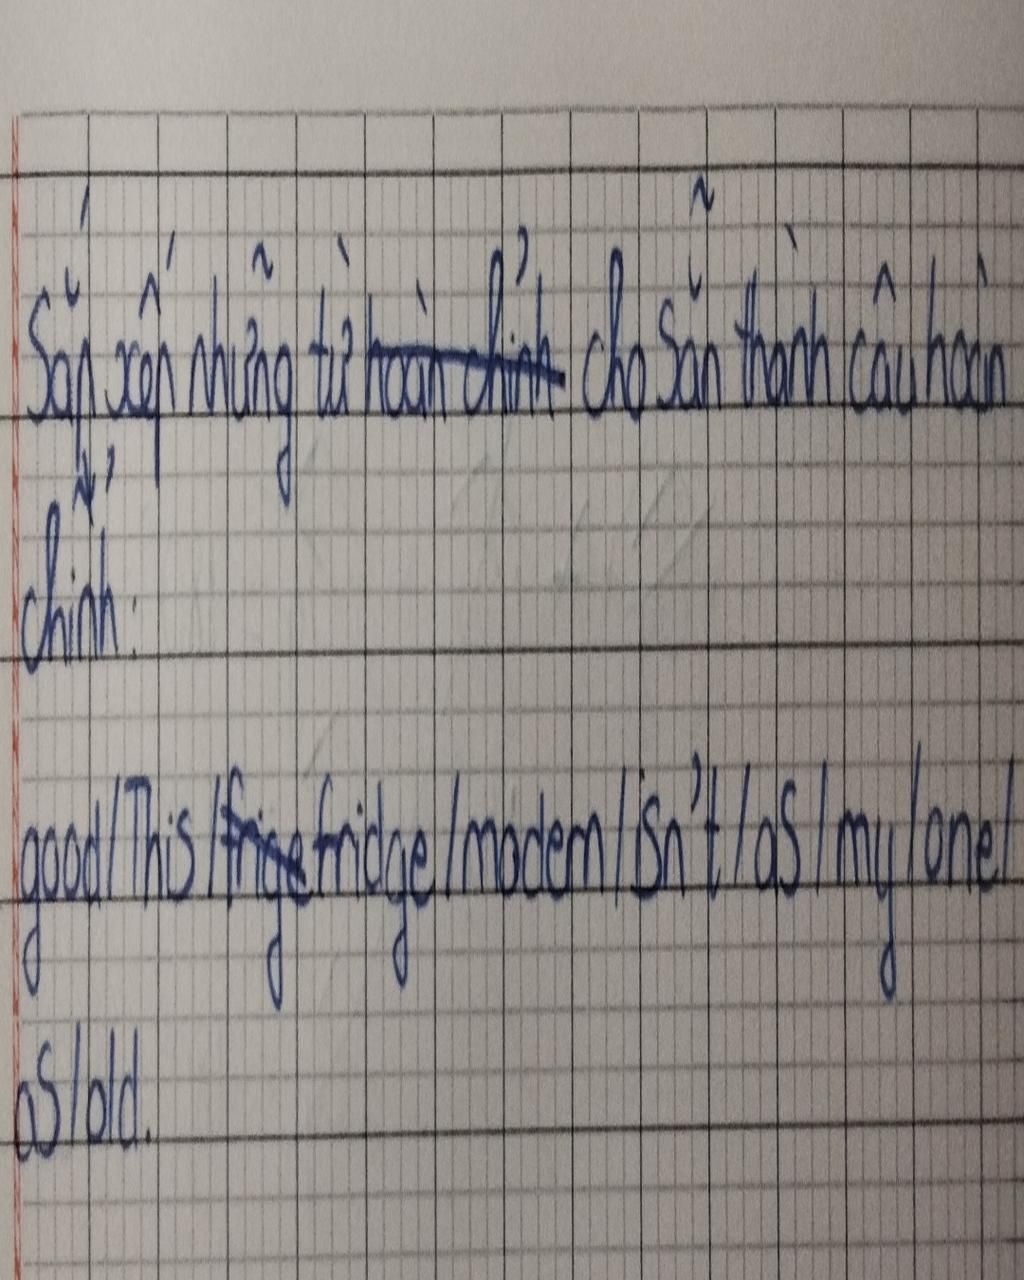 Sắp xếp những từ hoàn chỉnh cho sẵn thành câu hoàn
chỉnh:
good/This/frige fridge/modern/isn't/as/my/one/
as/old.